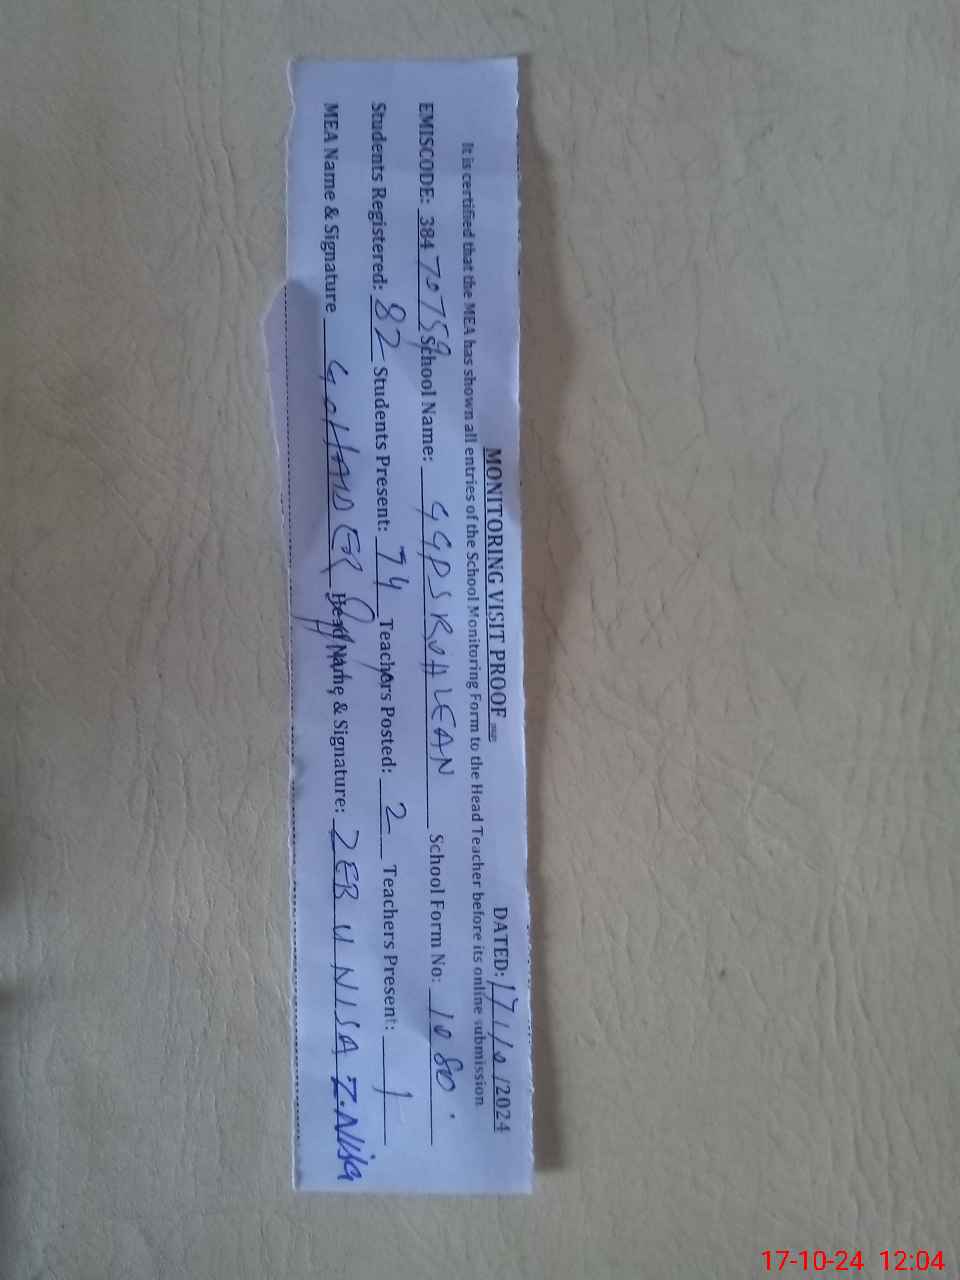 MONITORING VISIT PROOF DATED: 17/10/2024
It is certified that the MEA has shown all entries of the School Monitoring Form to the Head Teacher before its online submission
EMISCODE: 38470759 School Name: GGPS ROHLEAN School Form No: 1080
Students Registered: 82 Students Present: 74 Teachers Posted: 2 Teachers Present: 1
MEA Name & Signature Head Name & Signature: ZEB U NISA Z.Nisa
17-10-24 12:04